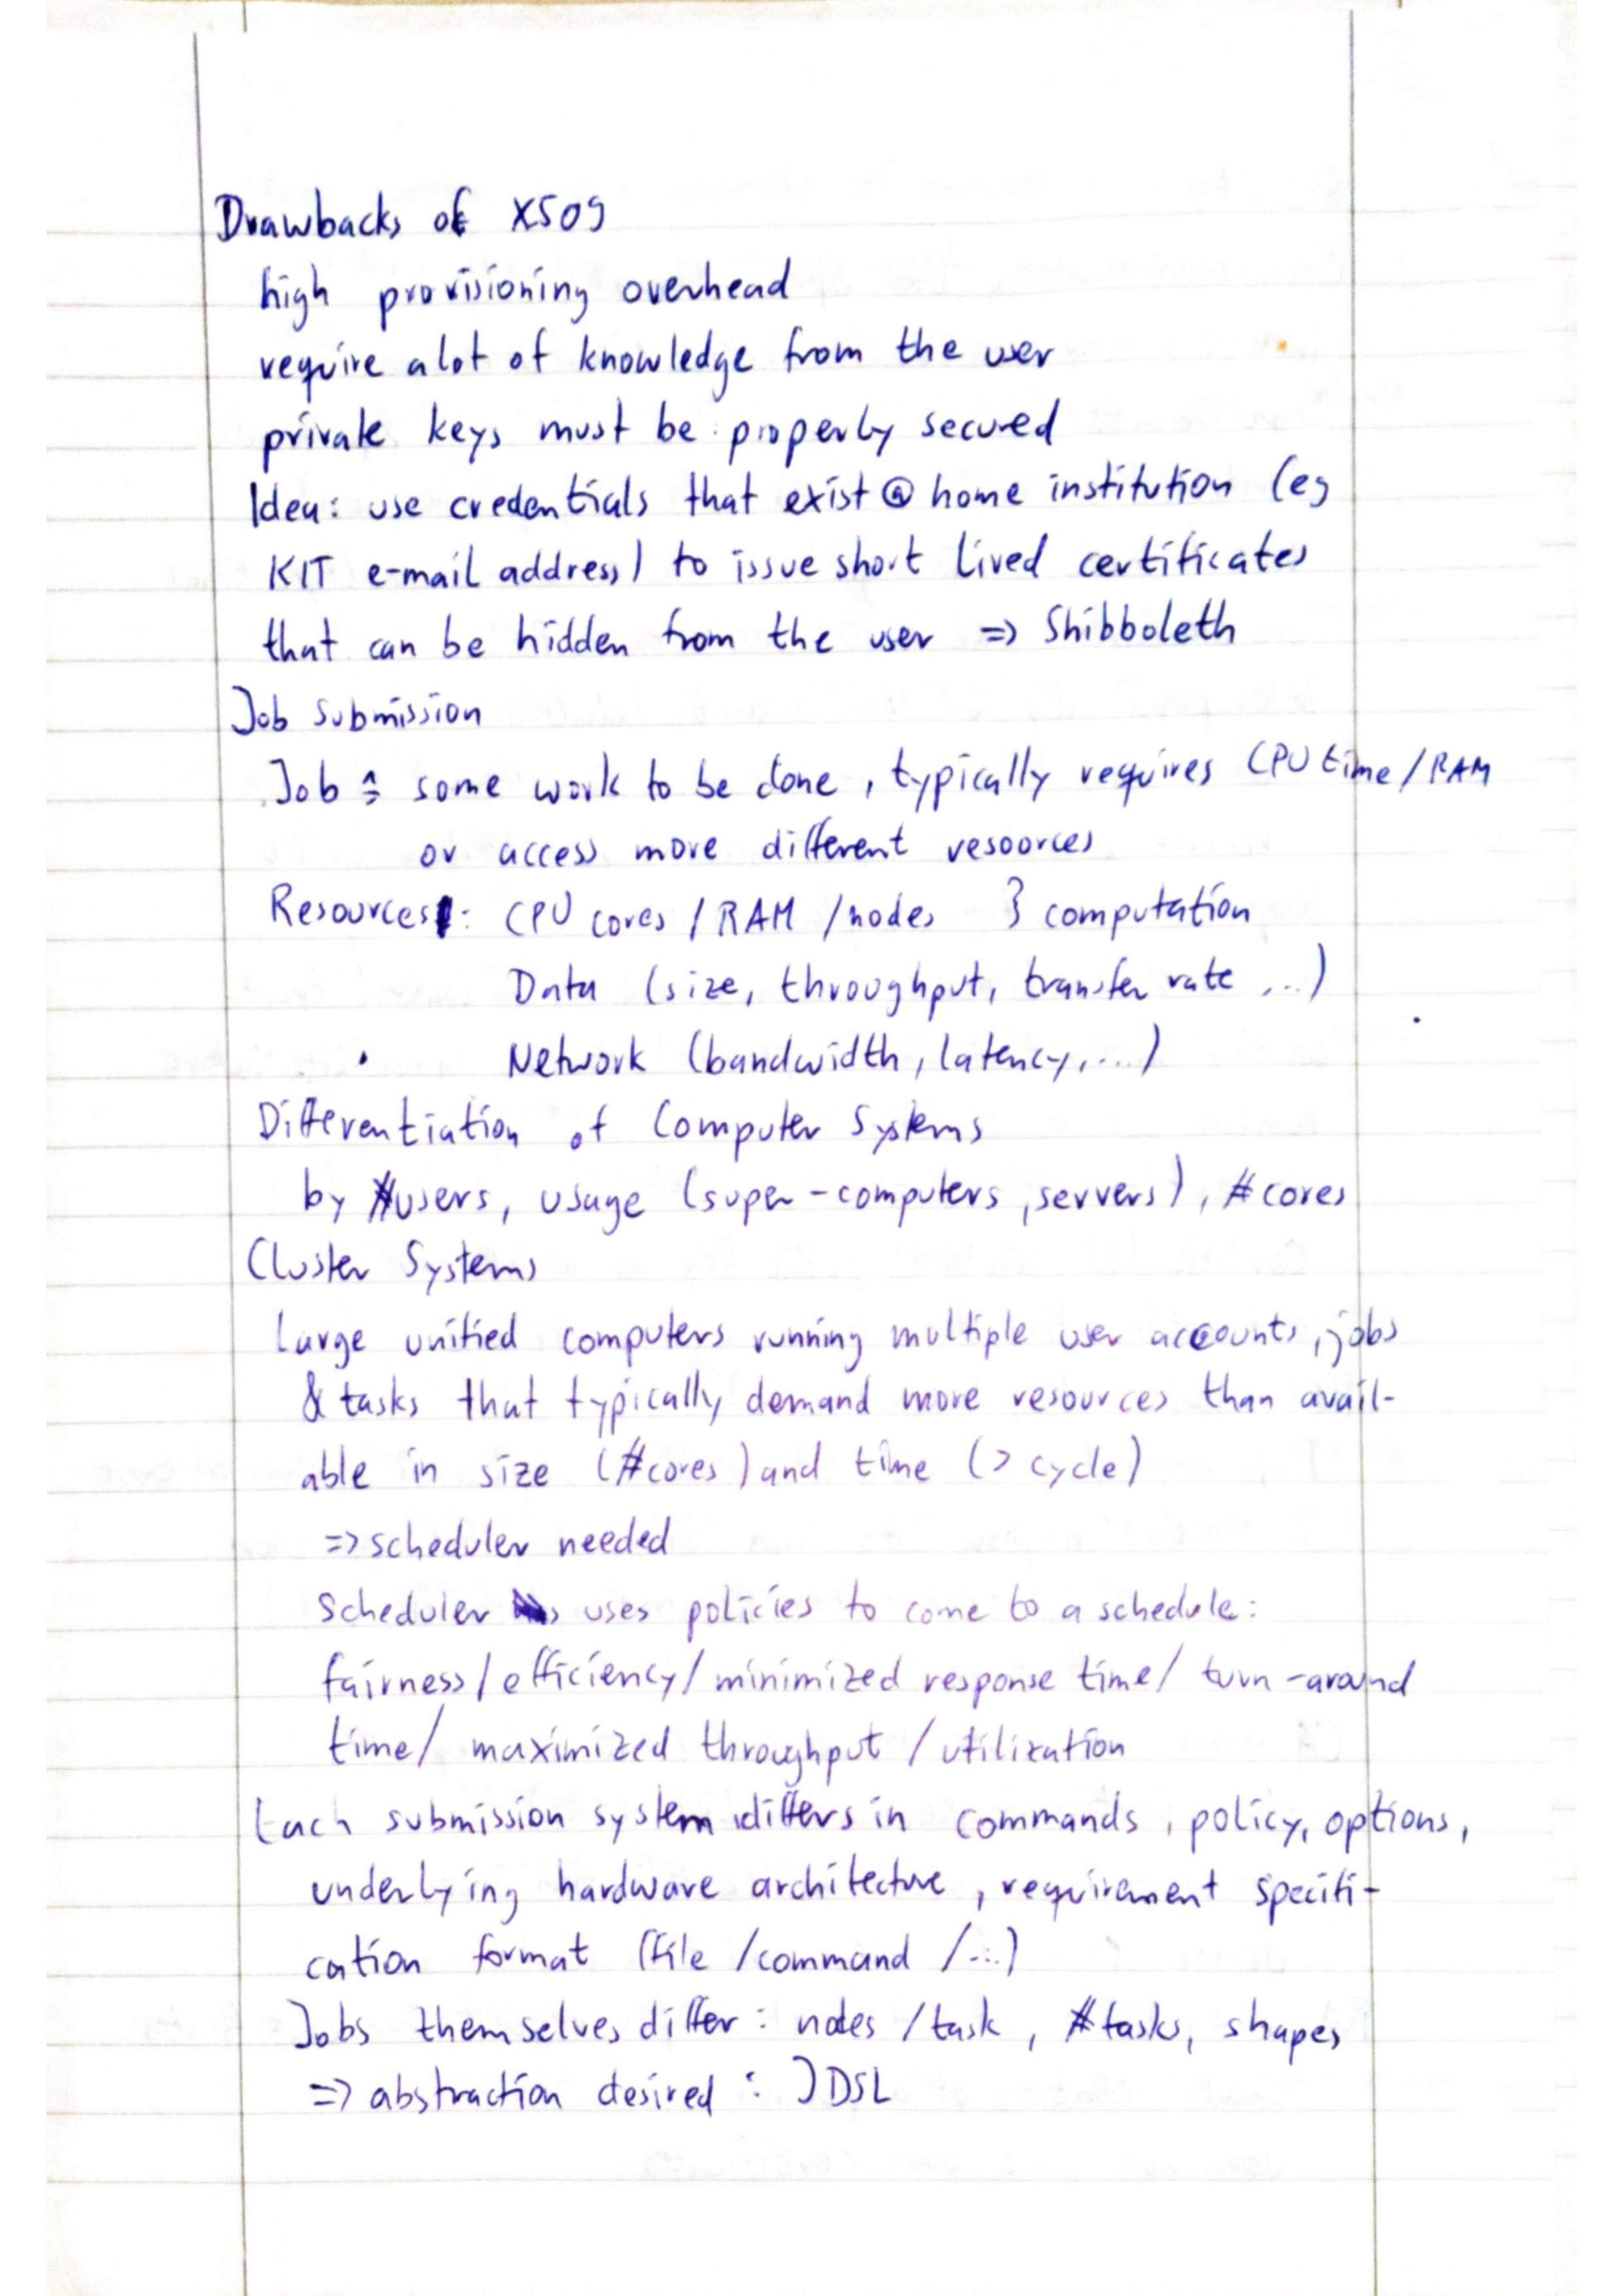 Drawbacks of X509
high provisioning overhead
require a lot of knowledge from the user
private keys must be properly secured
Idea: use credentials that exist @ home institution (eg
KIT e-mail address) to issue short lived certificates
that can be hidden from the user => Shibboleth
Job submission
Job ≙ some work to be done, typically requires CPU time / RAM
or access more different resources
Resources: CPU cores / RAM / nodes } computation
Data (size, throughput, transfer rate, ...)
Network (bandwidth, latency, ...)
Differentiation of Computer Systems
by #users, usage (super-computers, servers), #cores
Cluster Systems
Large unified computers running multiple user accounts, jobs
& tasks that typically demand more resources than avail-
able in size (#cores) and time (> cycle)
=> scheduler needed
scheduler uses policies to come to a schedule:
fairness / efficiency / minimized response time / turn-around
time / maximized throughput / utilization
Each submission system differs in commands, policy, options,
underlying hardware architecture, requirement specifi-
cation format (file / command / ...)
Jobs themselves differ: nodes / task, #tasks, shapes
=> abstraction desired: JDSL